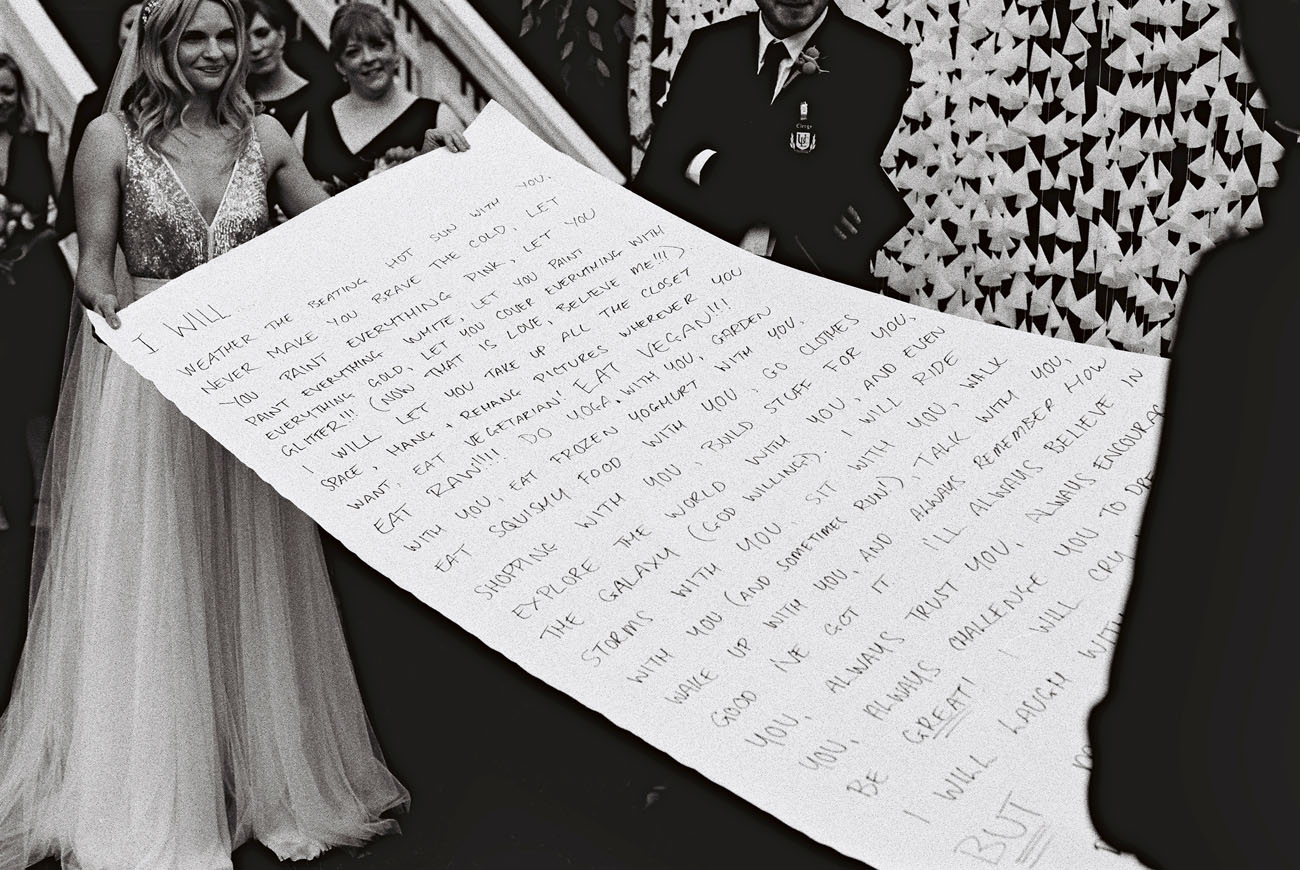 I WILL...
WEATHER THE BEATING HOT SUN WITH YOU,
NEVER MAKE YOU BRAVE THE COLD, LET
YOU PAINT EVERYTHING PINK, LET YOU
PAINT EVERYTHING WHITE, LET YOU PAINT
EVERYTHING GOLD, LET YOU COVER EVERYTHING WITH
GLITTER!!! (NOW THAT IS LOVE, BELIEVE ME!!!)
I WILL LET YOU TAKE UP ALL THE CLOSET
SPACE, HANG + REHANG PICTURES WHEREVER YOU
WANT, EAT VEGETARIAN! EAT VEGAN!!!!
EAT RAW!!!! DO YOGA WITH YOU, GARDEN
WITH YOU, EAT FROZEN YOGHURT WITH YOU,
EAT SQUISHY FOOD WITH YOU, GO CLOTHES
SHOPPING WITH YOU, BUILD STUFF FOR YOU,
EXPLORE THE WORLD WITH YOU, AND EVEN
THE GALAXY (GOD WILLING!). I WILL RIDE
STORMS WITH YOU, SIT WITH YOU, WALK
WITH YOU (AND SOMETIMES RUN!), TALK WITH YOU,
WAKE UP WITH YOU, AND ALWAYS REMEMBER HOW
GOOD I'VE GOT IT. I'LL ALWAYS BELIEVE IN
YOU, ALWAYS TRUST YOU, ALWAYS ENCOURAG
YOU, ALWAYS CHALLENGE YOU TO DRE
BE GREAT! I WILL CRY
I WILL LAUGH WITH
BUT
Clergy